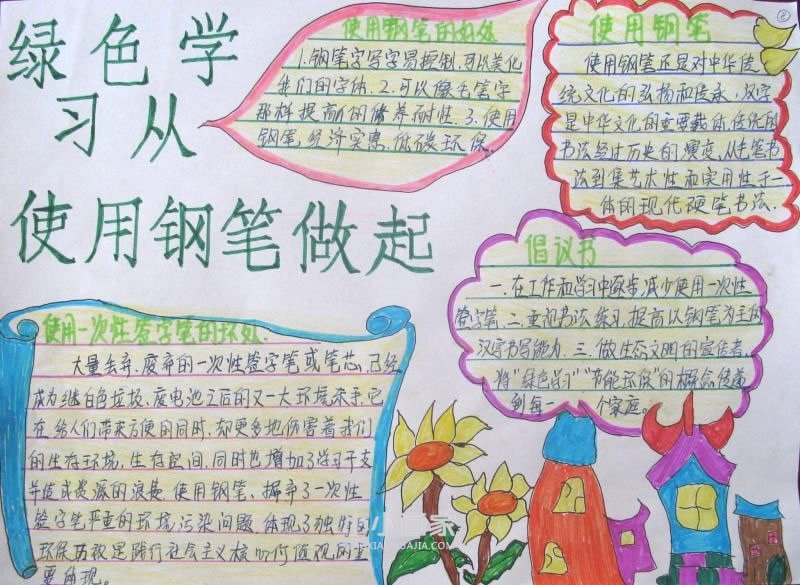 绿色学
习从
使用钢笔做起
使用钢笔的好处
1.钢笔字写字易控制,可以美化
我们的字体.2.可以像毛笔字
那样提高人的修养耐性.3.使用
钢笔,经济实惠.低碳环保.
使用钢笔
使用钢笔还是对中华传
统文化的弘扬和传承,汉字
是中华文化的重要载体,传统的
书法经过历史的演变,从毛笔书
法到集艺术性和实用性于一
体的现代硬笔书法.
倡议书
一.在工作和学习中逐步减少使用一次性
签字笔.二.重视书法练习,提高以钢笔为主的
汉字书写能力.三.做生态文明的宣传者,
将"绿色学习""节能环保"的概念传递
到每一个家庭。
使用一次性签字笔的坏处.
大量丢弃、废弃的一次性签字笔或笔芯,已经
成为继白色垃圾、废电池之后的又一大环境杀手,它
在给人们带来方便的同时,却更多地伤害着我们
的生存环境,生存空间,同时也增加了学习开支
并造成资源的浪费.使用钢笔,摒弃了一次性
签字笔严重的环境污染问题.体现了独特的
环保功效是践行社会主义核心价值观的重
要体现。